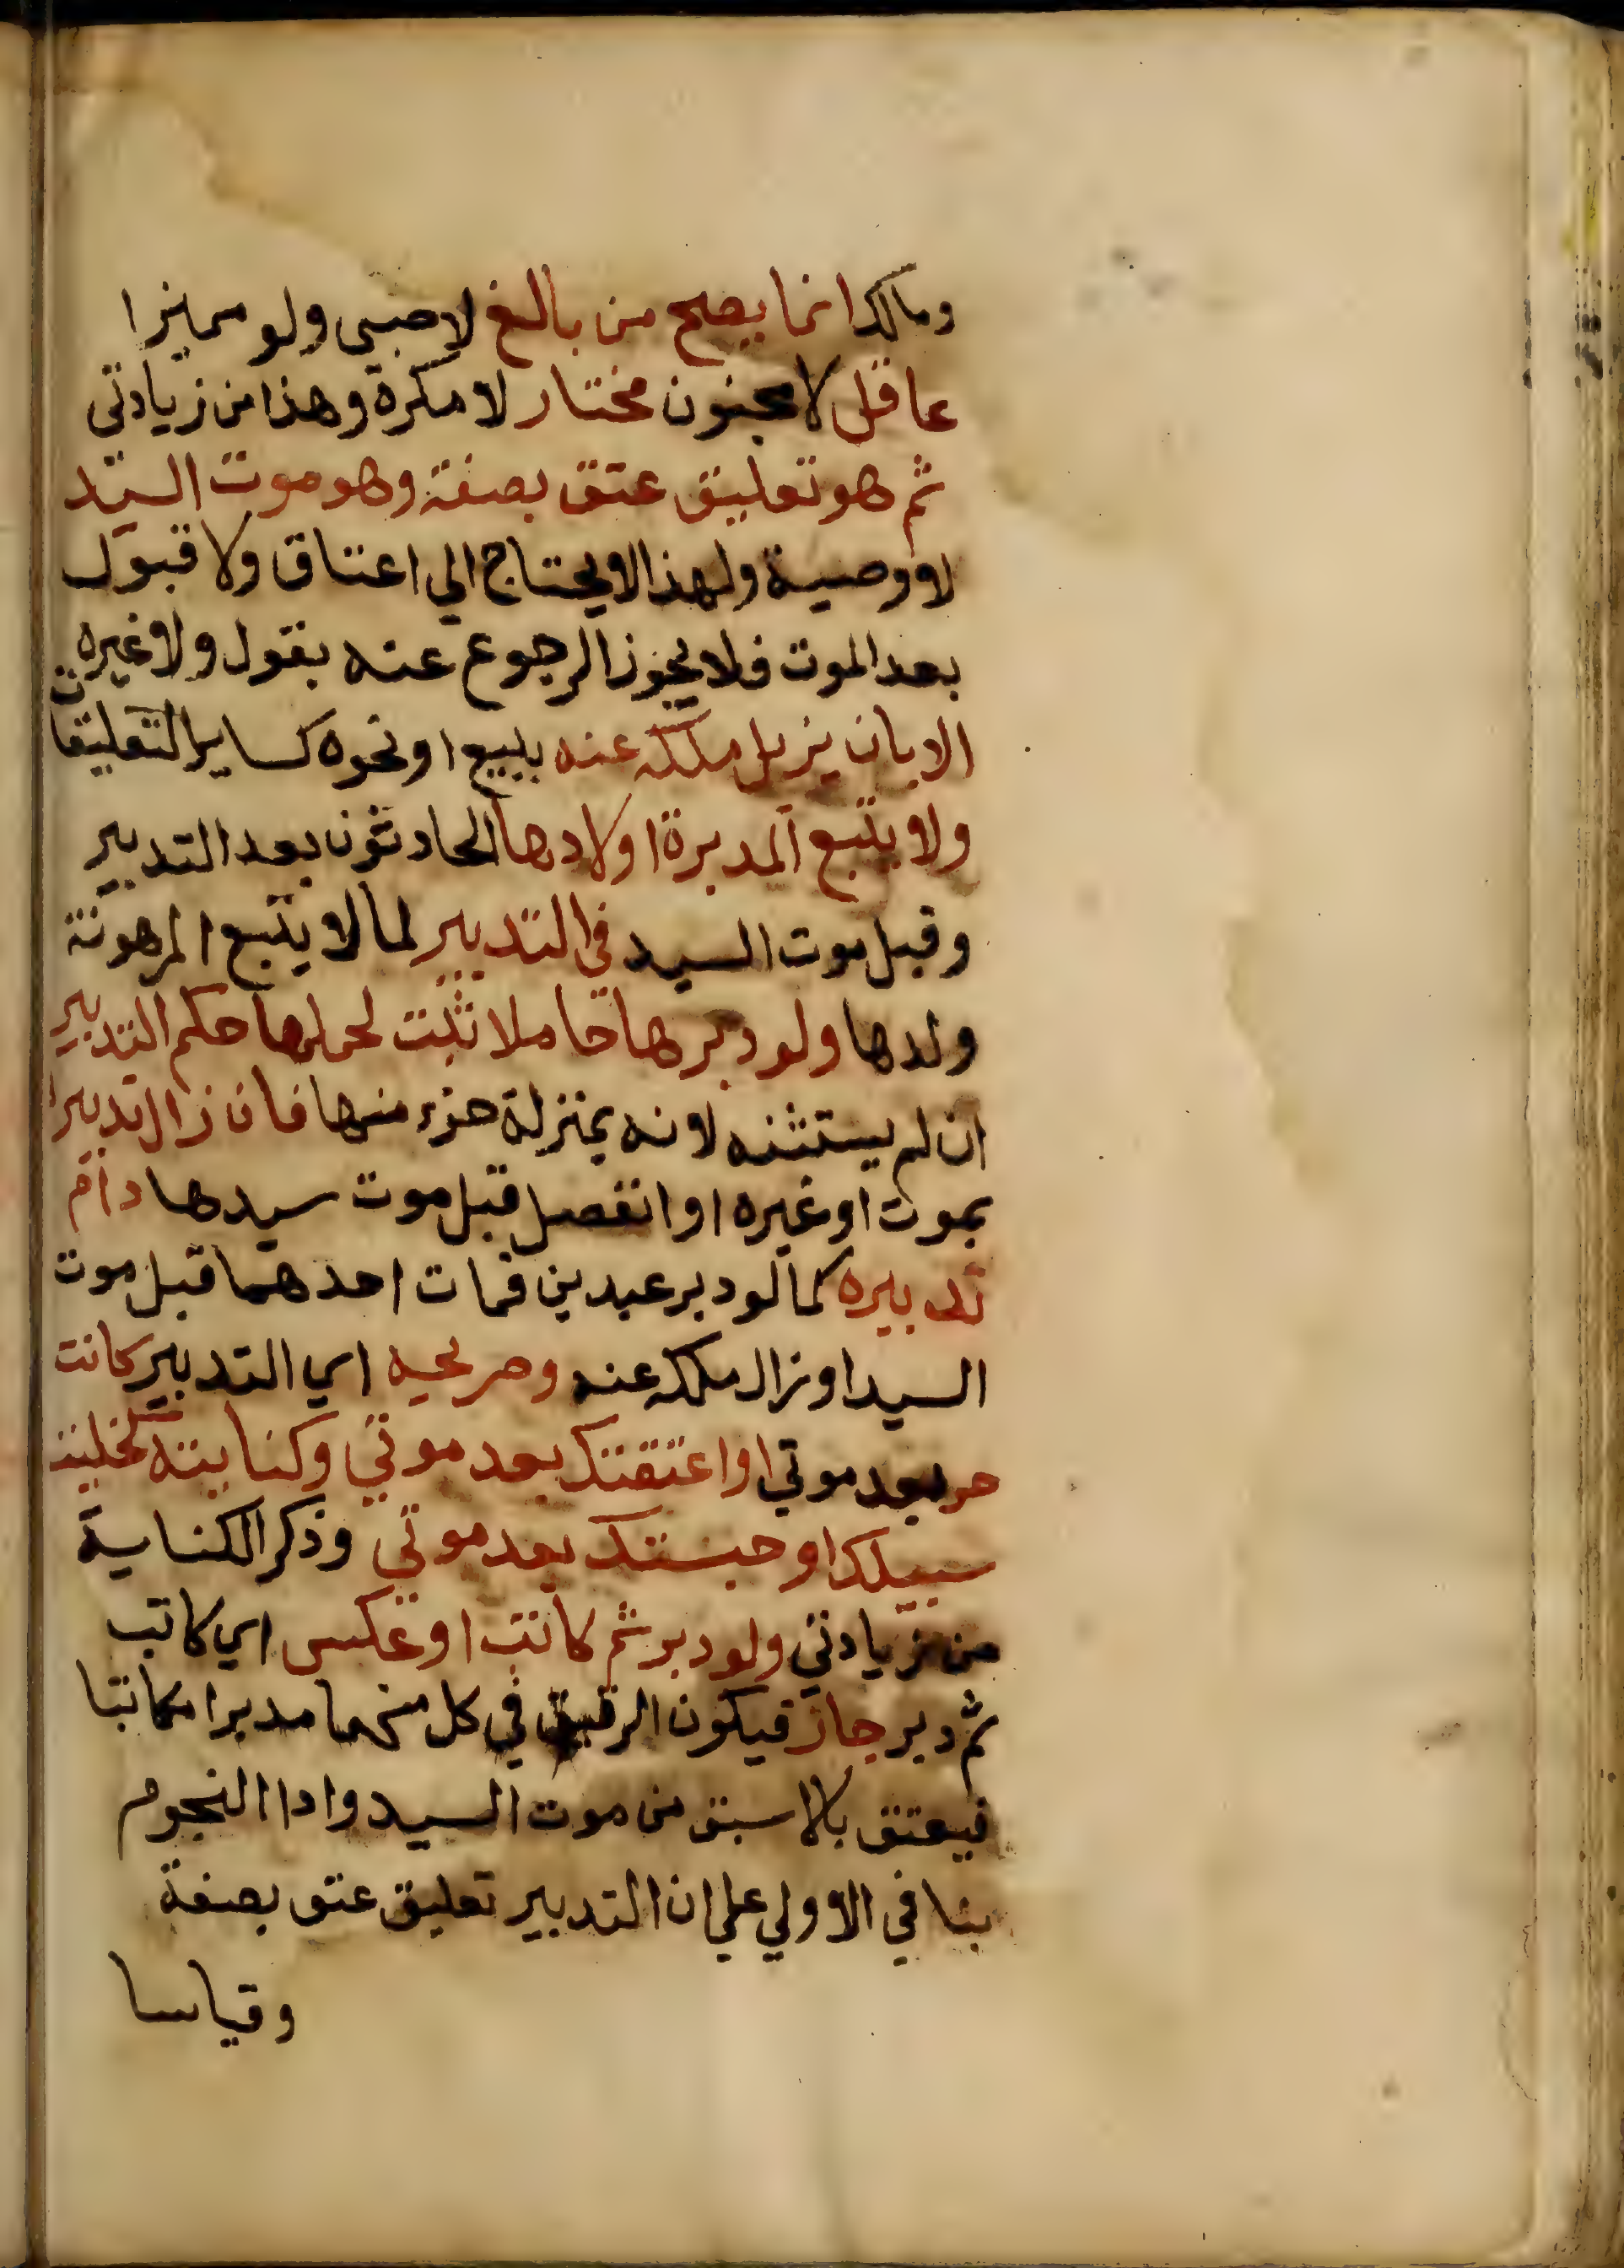 ومالك انما يصح من بالغ لا صبي ولو مميزا
عاقل لا مجنون مختار لا مكره وهذا من زيادتي
ثم هو تعليق عتق بصفة وهو موت السيد
لا وصية ولهذا لا يحتاج الي اعتاق ولا قبول
بعد الموت فلا يجوز الرجوع عنه بقول ولا غيره
الا بان يزيل ملكه عنه ببيع او نحوه كساير التعليقات
ولا يتبع المدبرة اولادها الحادثون بعد التدبير
وقبل موت السيد في التدبير لما لا يتبع المرهونة
ولدها ولو دبرها حاملا ثبت لحملها حكم التدبير
ان لم يستثنه لانه بمنزلة جزء منها فان زال تدبيرها
بموت او غيره او انفصل قبل موت سيدها دام
تدبيره كما لو دبر عبدين فمات احدهما قبل موت
السيد او زال ملكه عنه وصريحه اي التدبير كانت
حر بعد موتي او اعتقتك بعد موتي وكنايته كخليت
سبيلك او حبستك بعد موتي وذكر الكناية
من زيادتي ولو دبر ثم كاتب او عكس اي كاتب
ثم دبر جاز فيكون الرقيق في كل منهما مدبرا مكاتبا
فيعتق بالاسبق من موت السيد وادا النجوم
بنا في الاولي علي ان التدبير تعليق عتق بصفة
وقياسا